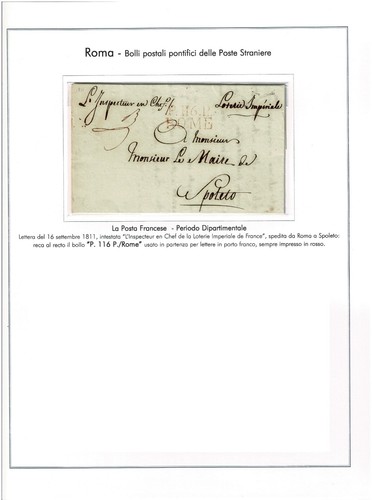 Roma - Bolli postali pontifici delle Poste Straniere
L'Inspecteur en Chef
Loterie Impériale
P. 116 P.
ROME
A Monsieur
Monsieur Le Maire de
Spoleto
La Posta Francese - Periodo Dipartimentale
Lettera del 16 settembre 1811, intestata "L'Inspecteur en Chef de la Loterie Imperiale de France", spedita da Roma a Spoleto:
reca al recto il bollo "P. 116 P./Rome" usato in partenza per lettere in porto franco, sempre impresso in rosso.